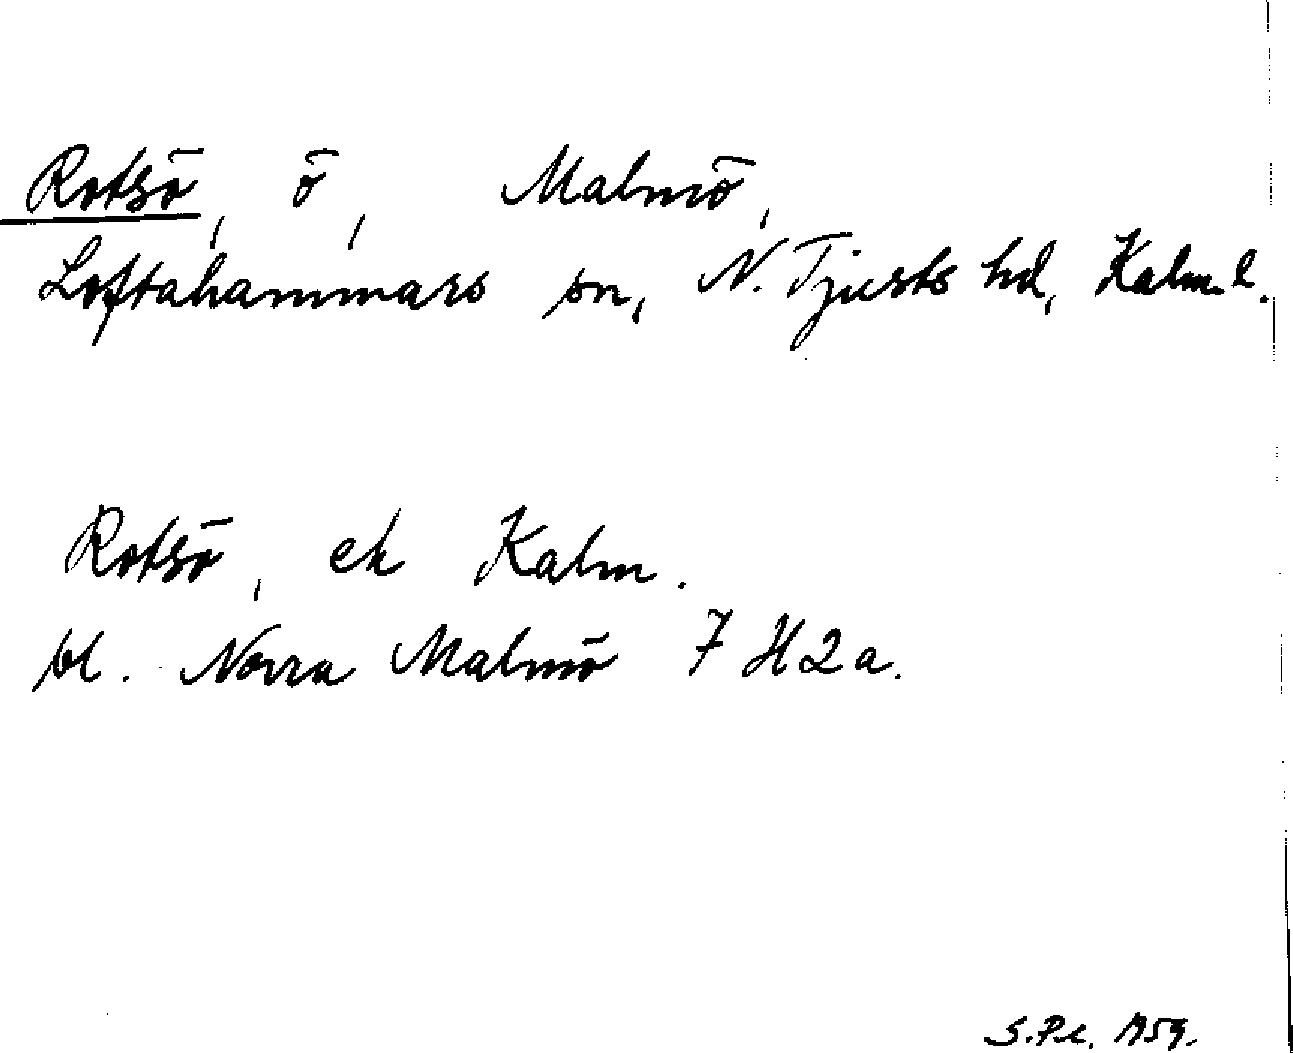 Rotsö, ö, Malmö,
Loftahammars sn, N. Tjusts hd, Kalm. l.
Rotsö, ek Kalm.
bl. Norra Malmö 7 H 2 a.
1959.